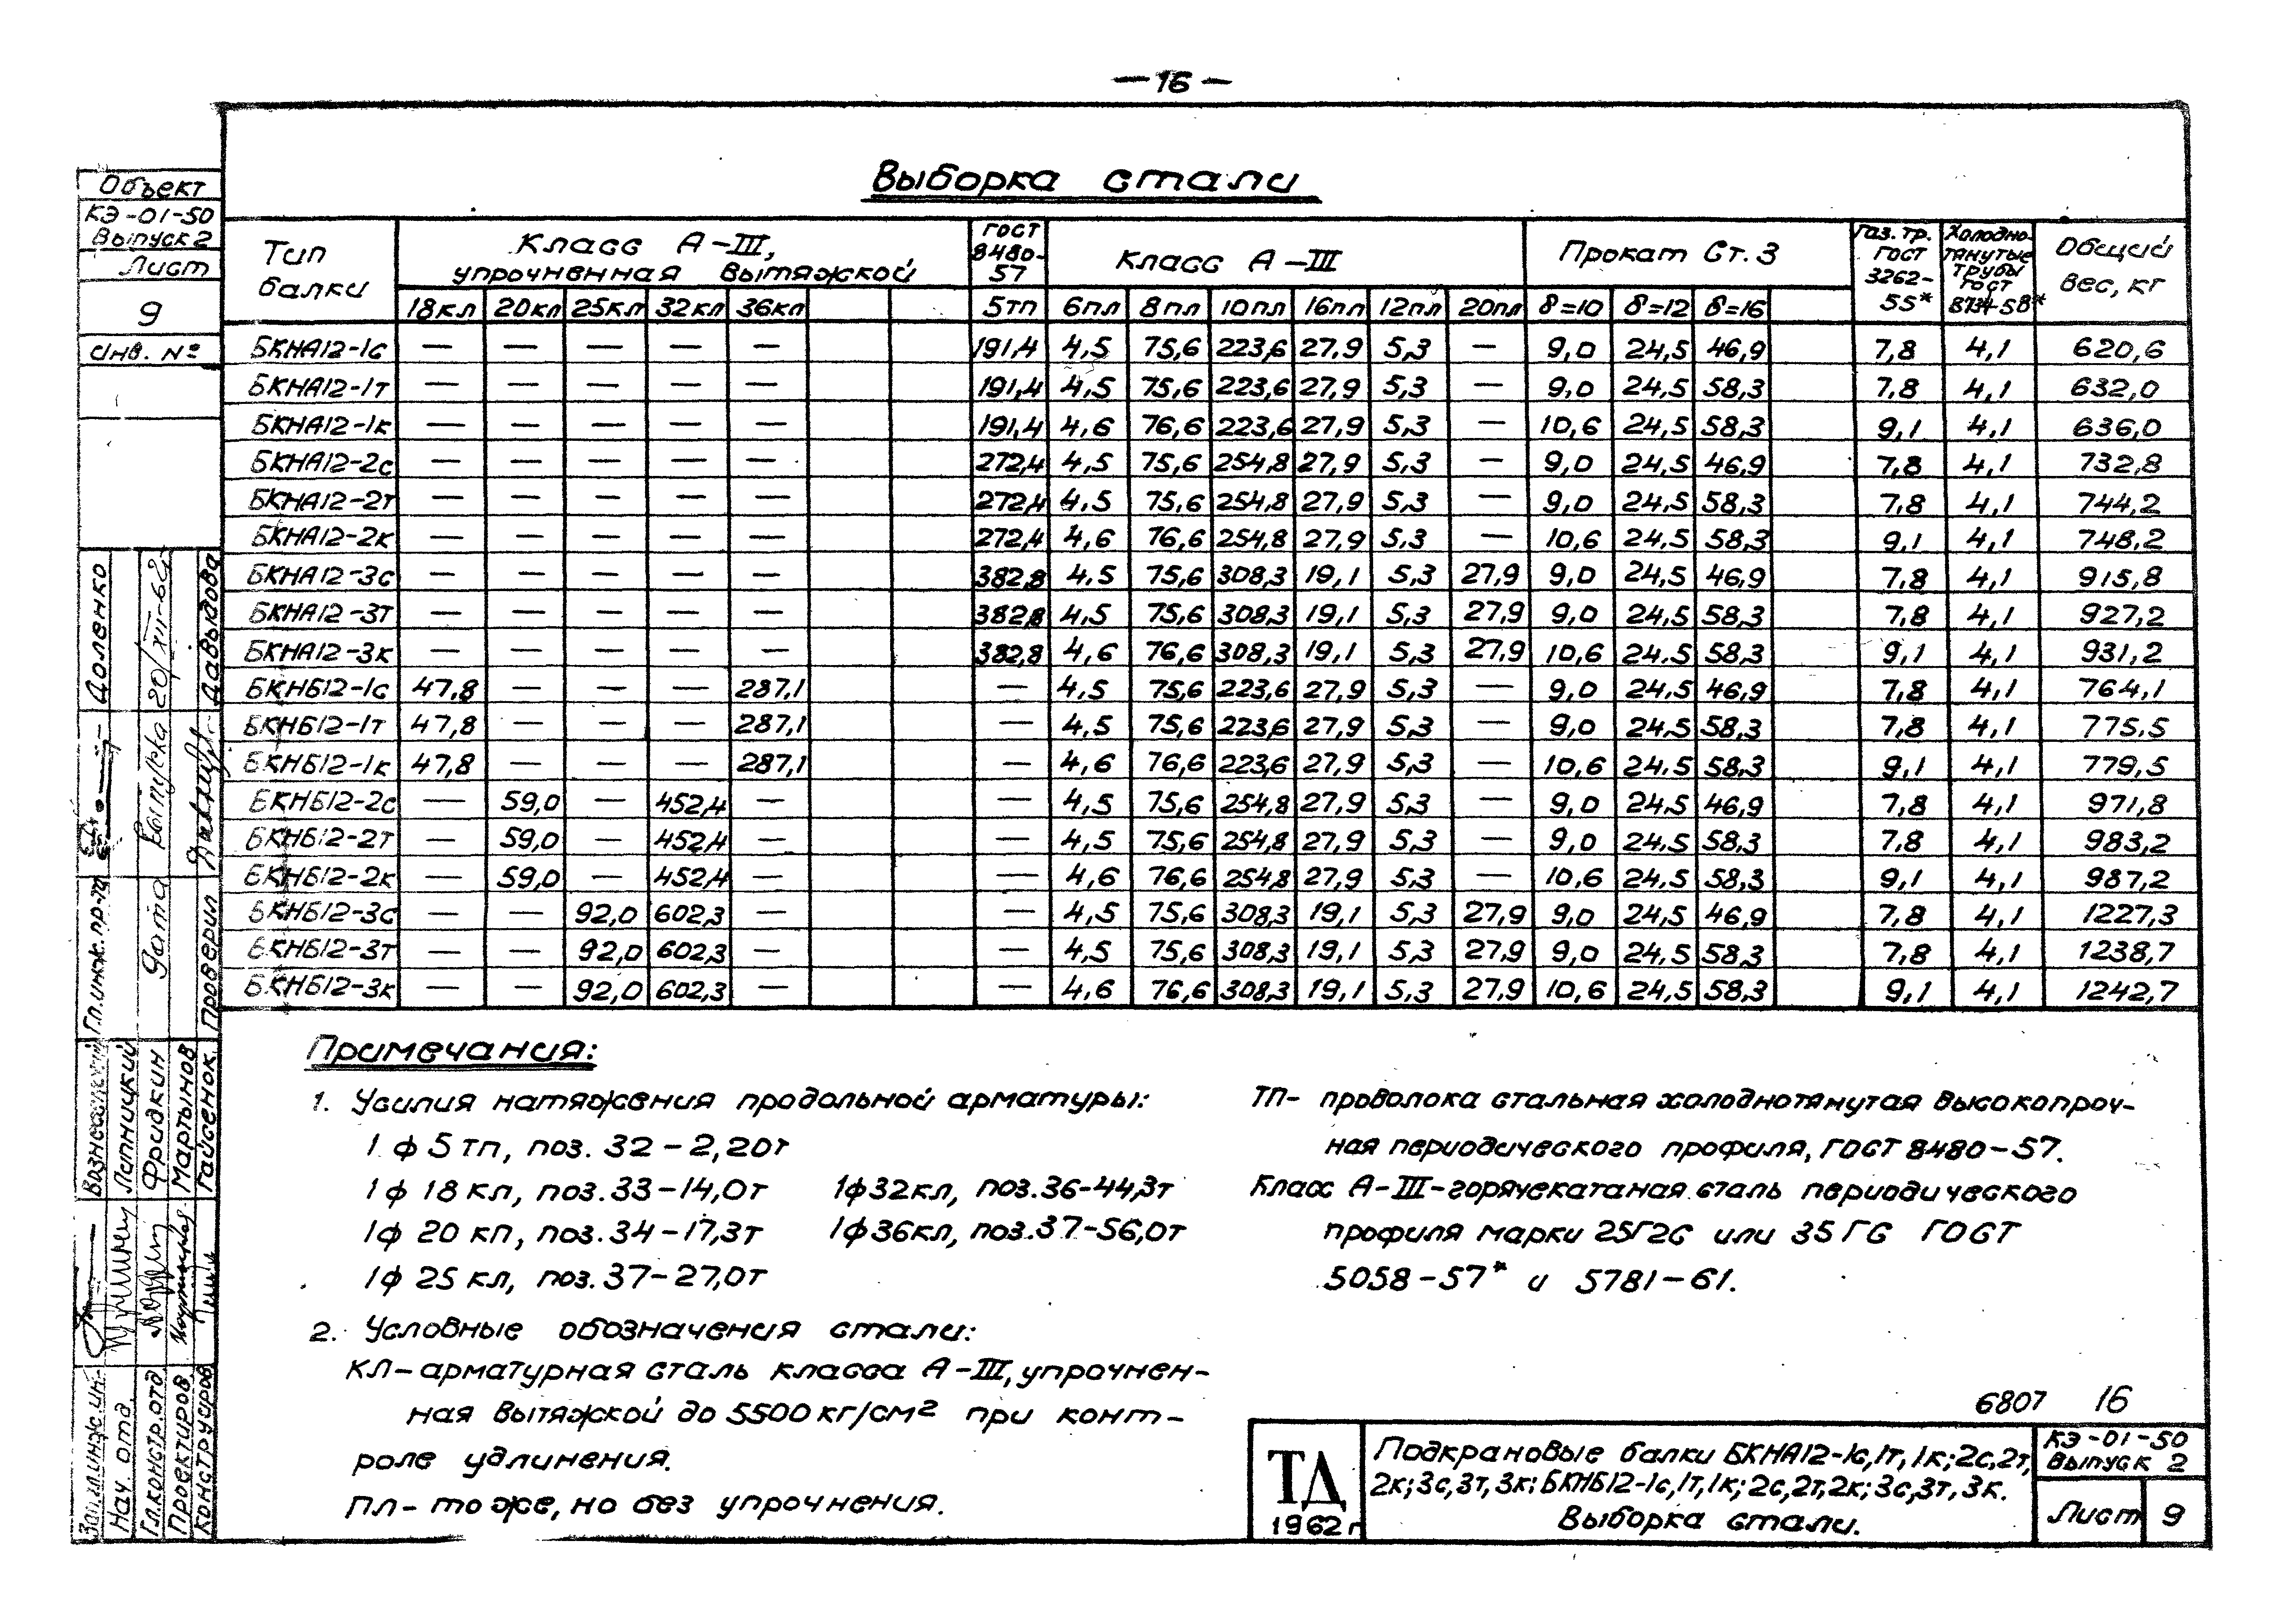 — 16 —
Выборка стали
Объект
КЭ-01-50
Выпуск 2
Лист
9
Инв. №
Тип балки | Класс А-III, упрочненная вытяжкой | ГОСТ 8480-57 | Класс А-III | Прокат Ст. 3 | Газ. тр. ГОСТ 3262-55* | Холоднотянутые трубы ГОСТ 8734-58* | Общий вес, кг
18кл | 20кл | 25кл | 32кл | 36кл | 5тп | 6пл | 8пл | 10пл | 16пл | 12пл | 20пл | δ=10 | δ=12 | δ=16
БКНА12-1с — — — — — 191,4 4,5 75,6 223,6 27,9 5,3 — 9,0 24,5 46,9 7,8 4,1 620,6
БКНА12-1т — — — — — 191,4 4,5 75,6 223,6 27,9 5,3 — 9,0 24,5 58,3 7,8 4,1 632,0
БКНА12-1к — — — — — 191,4 4,6 76,6 223,6 27,9 5,3 — 10,6 24,5 58,3 9,1 4,1 636,0
БКНА12-2с — — — — — 272,4 4,5 75,6 254,8 27,9 5,3 — 9,0 24,5 46,9 7,8 4,1 732,8
БКНА12-2т — — — — — 272,4 4,5 75,6 254,8 27,9 5,3 — 9,0 24,5 58,3 7,8 4,1 744,2
БКНА12-2к — — — — — 272,4 4,6 76,6 254,8 27,9 5,3 — 10,6 24,5 58,3 9,1 4,1 748,2
БКНА12-3с — — — — — 382,8 4,5 75,6 308,3 19,1 5,3 27,9 9,0 24,5 46,9 7,8 4,1 915,8
БКНА12-3т — — — — — 382,8 4,5 75,6 308,3 19,1 5,3 27,9 9,0 24,5 58,3 7,8 4,1 927,2
БКНА12-3к — — — — — 382,8 4,6 76,6 308,3 19,1 5,3 27,9 10,6 24,5 58,3 9,1 4,1 931,2
БКНБ12-1с 47,8 — — — 287,1 — 4,5 75,6 223,6 27,9 5,3 — 9,0 24,5 46,9 7,8 4,1 764,1
БКНБ12-1т 47,8 — — — 287,1 — 4,5 75,6 223,6 27,9 5,3 — 9,0 24,5 58,3 7,8 4,1 775,5
БКНБ12-1к 47,8 — — — 287,1 — 4,6 76,6 223,6 27,9 5,3 — 10,6 24,5 58,3 9,1 4,1 779,5
БКНБ12-2с — 59,0 — 452,4 — — 4,5 75,6 254,8 27,9 5,3 — 9,0 24,5 46,9 7,8 4,1 971,8
БКНБ12-2т — 59,0 — 452,4 — — 4,5 75,6 254,8 27,9 5,3 — 9,0 24,5 58,3 7,8 4,1 983,2
БКНБ12-2к — 59,0 — 452,4 — — 4,6 76,6 254,8 27,9 5,3 — 10,6 24,5 58,3 9,1 4,1 987,2
БКНБ12-3с — — 92,0 602,3 — — 4,5 75,6 308,3 19,1 5,3 27,9 9,0 24,5 46,9 7,8 4,1 1227,3
БКНБ12-3т — — 92,0 602,3 — — 4,5 75,6 308,3 19,1 5,3 27,9 9,0 24,5 58,3 7,8 4,1 1238,7
БКНБ12-3к — — 92,0 602,3 — — 4,6 76,6 308,3 19,1 5,3 27,9 10,6 24,5 58,3 9,1 4,1 1242,7
Примечания:
1. Усилия натяжения продольной арматуры:
1 ф 5 тп, поз. 32 – 2,20т
1 ф 18 кл, поз. 33 – 14,0т 1ф32кл, поз.36-44,3т
1ф 20 кл, поз. 34 – 17,3т 1ф36кл, поз.37-56,0т
1ф 25 кл, поз. 37 – 27,0т
2. Условные обозначения стали:
КЛ – арматурная сталь класса А-III, упрочнен-
ная вытяжкой до 5500 кг/см² при конт-
роле удлинения.
ПЛ – то же, но без упрочнения.
ТП – проволока стальная холоднотянутая высокопроч-
ная периодического профиля, ГОСТ 8480-57.
Класс А-III – горячекатаная сталь периодического
профиля марки 25Г2С или 35ГС ГОСТ
5058-57* и 5781-61.
6807 16
ТД
1962 г
Подкрановые балки БКНА12-1с,1т,1к;2с,2т,
2к;3с,3т,3к; БКНБ12-1с,1т,1к;2с,2т,2к;3с,3т,3к.
Выборка стали.
КЭ-01-50
Выпуск 2
Лист 9
Гл.инж.пр-та Доленко
Дата выпуска 20/XII-62
Проверил Давыдова
Нач. отд. Липницкий
Гл.констр.отд Фридкин
Проектиров. Мартынов
Конструиров. Гайсенок